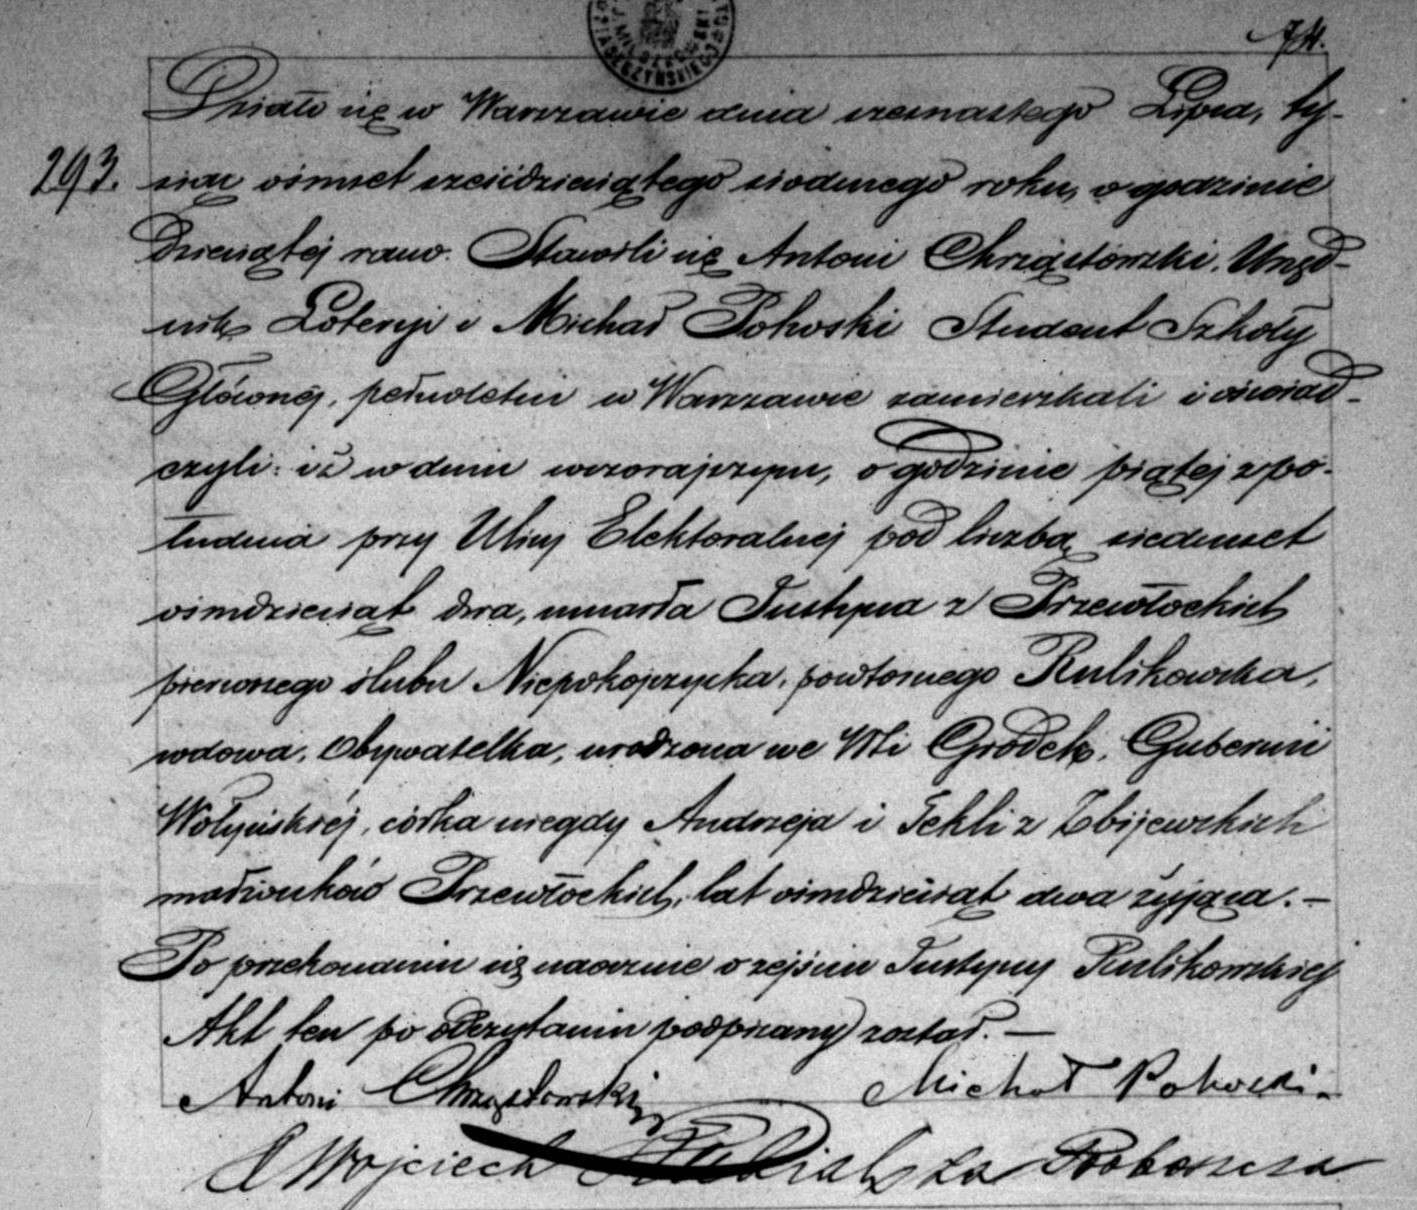 74.
Działo się w Warszawie dnia szesnastego Lipca, ty-
293. siąc ośmset sześćdziesiątego siódmego roku, o godzinie
dziesiątej rano. Stawili się Antoni Chrząstowski, Urzęd-
nik Loteryi i Michał Pohoski Student Szkoły
Głównej, pełnoletni w Warszawie zamieszkali i oświad-
czyli: iż w dniu wczorajszym, o godzinie piątej z po-
łudnia przy Ulicy Elektoralnej pod liczbą siedmset
ośmdziesiąt dwa, umarła Justyna z Przewłockich
pierwszego ślubu Niepokojczycka, powtórnego Rulikowska,
wdowa, Obywatelka, urodzona we Wsi Gródek, Gubernii
Wołyńskiéj, córka niegdy Andrzeja i Tekli z Zbijewskich
małżonków Przewłockich, lat ośmdziesiąt dwa żyjąca. —
Po przekonaniu się naocznie o zejściu Justyny Rulikowskiej
Akt ten po odczytaniu podpisany został. —
Antoni Chrząstowski Michał Pohoski.
X Wojciech za Proboszcza